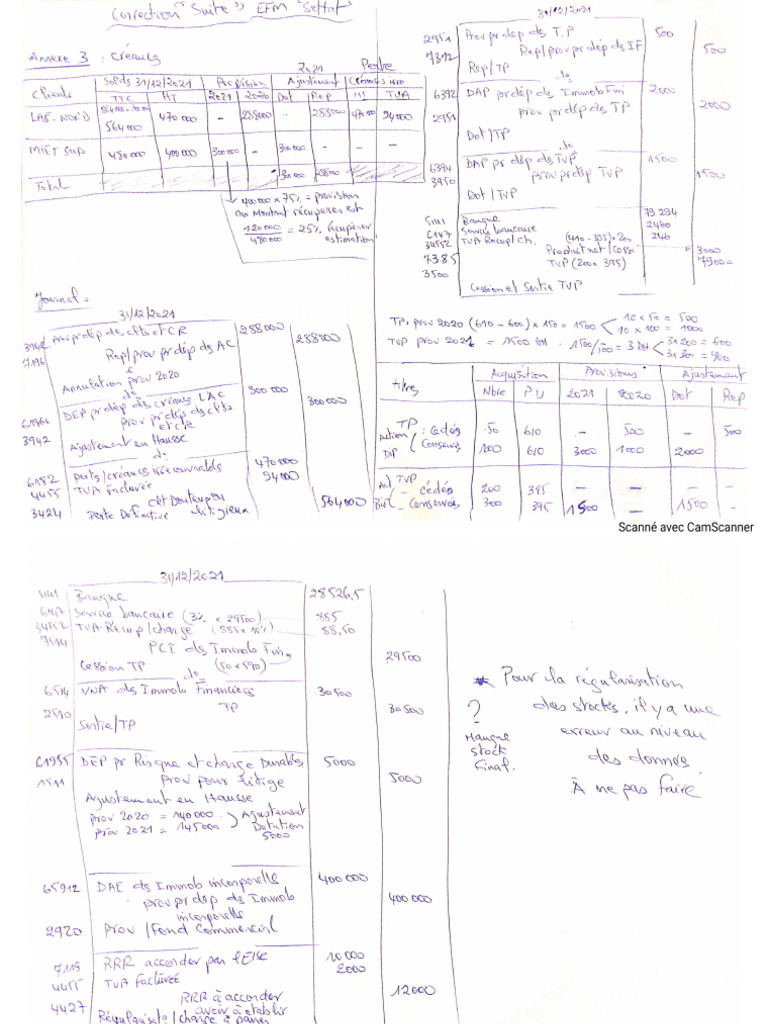 Correction "Suite" EFM "Settat"
Annexe 3 : Créances
2021
Perte
Clients | Solds 31/12/2021 | Provision | Ajustement | Créances irre
TTC | HT | 2021 | 2020 | Dot | Rep | HT | TVA
LAB-WORD | 564000 | 470000 | - | 288000 | - | 288000 | 470000 | 94000
MIFT SUP | 480000 | 400000 | 300000 | - | 300000 | - | - | -
Total | 300000 | 288000
400000 x 75% = provision
car Montant récupérer est
120000 / 480000 = 25% récupérer
estimation
Journal =
31/12/2021
3942 Prov pr dép ds clts et CR 288000
7196 Rep/prov pr dép ds AC 288000
Annulation prov 2020
do
DEP pr dép ds créances LAC 300000
3942 prov pr dép ds clts et CR 300000
Ajustement en Hausse
do
6182 perts/créances irrécouvrables 470000
4455 TVA Facturée 94000
3424 clt Douteux ou litigieux 564000
Perte Définitive
31/12/2021
2951 Prov pr dép ds T.P 500
7392 Rep/prov pr dép ds IF 500
Rep/TP
do
6392 DAP pr dép ds Immob Fin 2000
2951 prov pr dép ds TP 2000
Dot/TP
do
6394 DAP pr dép ds TVP 1500
3950 prov pr dép TVP 1500
Dot/TVP
5141 Banque 73294
6147 Service bancaire 2460
34552 TVA Recup/ch. 246
7385 (410-395) x 200 Produit net/Cession 3000
3500 TVP (200 x 395) 79000
Cession et Sortie TVP
TP, prov 2020 (610 - 600) x 150 = 1500 < 10 x 50 = 500
10 x 100 = 1000
TVP prov 2021 = 1500 . 1500/500 = 3 dh < 3 x 200 = 600
3 x 300 = 900
titres | Acquisition | Provisions | Ajustement
Nbre | PU | 2021 | 2020 | Dot | Rep
TP
Action : cédés | 50 | 610 | - | 500 | - | 500
DIP Conservés | 100 | 610 | 3000 | 1000 | 2000
TVP
- cédés | 200 | 395 | - | - | - | -
- Conservés | 300 | 395 | 1500 | - | 1500 | -
Scanné avec CamScanner
31/12/2021
5141 Banque 28526,5
6147 Service bancaire (3% x 29500) 885
34552 TVA Récup/charge (885 x 10%) 88,50
7514 PCI ds Immob Fin, 29500
Cession TP (50 x 590)
do
6514 VNA ds Immob Financières 30500
2510 TP 30500
Sortie/TP
61955 DEP pr Risque et charge Durables 5000
1511 prov pour litige 5000
Ajustement en Hausse
prov 2020 = 140000
prov 2021 = 145000 } Ajustement Dotation 5000
65912 DAE ds Immob incorporelles 400000
prov pr dép ds Immob incorporelles 400000
2920 Prov/Fond Commercial
7119 RRR accorder par l'Else 10000
4455 TVA facturée 2000
4427 RRR à accorder avoir à établir 12000
Régularisat°/charge à payer
* Pour la régularisation
? des stocks, il y a une
erreur au niveau
Manque stock Final.
des donnés.
À ne pas faire